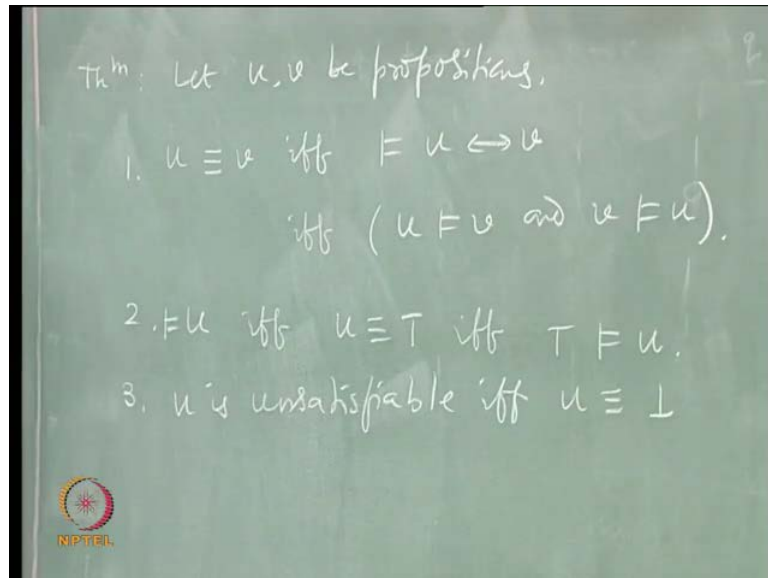 Thm: Let u, v be propositions.
1. u ≡ v iff ⊨ u ↔ v
iff (u ⊨ v and v ⊨ u).
2. ⊨ u iff u ≡ ⊤ iff ⊤ ⊨ u.
3. u is unsatisfiable iff u ≡ ⊥
NPTEL